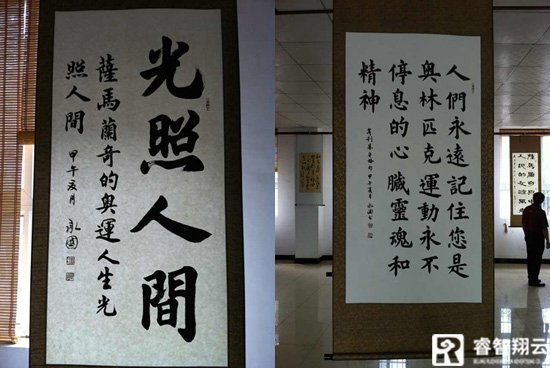 光照人間
薩馬蘭奇的奧運人生光
照人間
甲午夏月 永國
人們永遠記住您是
奧林匹克運動永不
停息的心臟靈魂和
精神
睿智翔云